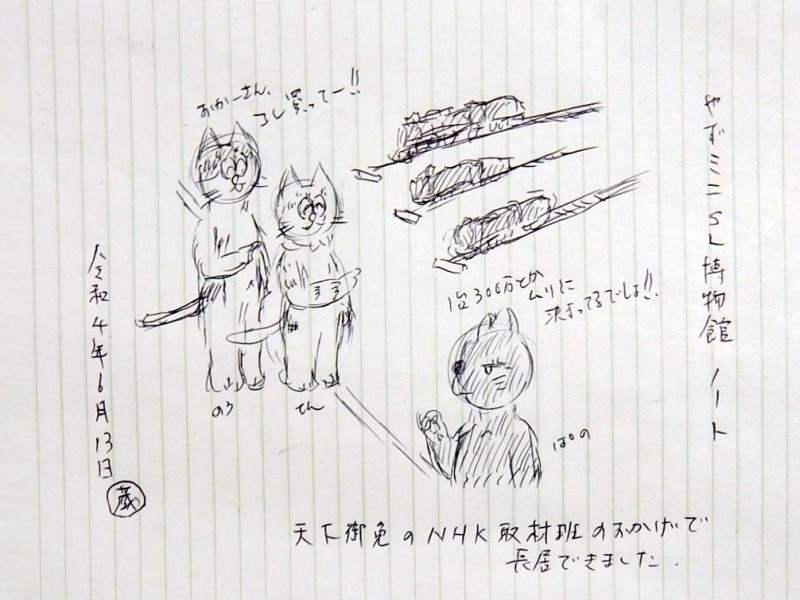 やずミニSL博物館 ノート
おかーさん、
コレ買ってー!!
1台300万とか
ムリに
決まってるでしょ!!
のろ
てん
ぱの
令和4年6月13日
蔵
天下御免のNHK取材班のおかげで
長居できました.